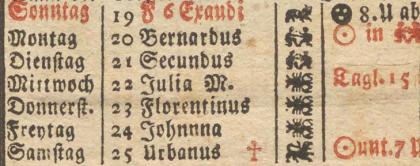 Sonntag 19 F 6 Exaudi 8. U ab
Montag 20 Bernardus ☉ in
Dienstag 21 Secundus
Mittwoch 22 Julia M. Tagl. 15
Donnerst. 23 Florentinus
Freytag 24 Johnnna
Samstag 25 Urbanus ☉unt. 7